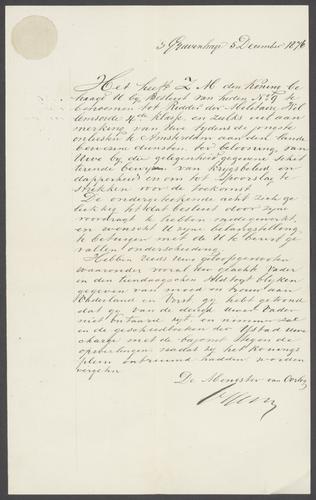 s Gravenhage 5 December 1876
Het heeft Z M den Koning be
haagd U bij Besluit van heden No 9 te
benoemen tot Ridder der Militaire Wil
lemsorde 4de klasse, en zulks uit aan
merking van Uwe tydens de jongste
onlusten te Amsterdam aan den lande
bewezene diensten, ter belooning, van
Uwe by, die gelegenheid gegevene schit
terende bewyzen van krygsbeleid en
dapperheid en om tot spoorslag te
strekken voor de toekomst.
De ondergeteekende acht zich ge
lukkig tot dat besluit door zyne
voordragt te hebben medegewerkt,
en wenscht U zyne belangstelling
te betuigen met de U te beurt ge
vallen onderscheiding.
Hebben reeds Uwe
waaronder vooral Uw Vader
in den tiendaagschen blyken
gegeven van moed en trouw aan
Vaderland en Vorst, gy hebt getoond
dat gy van de deugd uwer Vader
niet ontaard zyt, en nimmer zal
in de geschiedboeken der Uwe
charge met de bajonet tegen de
opstootelingen zoodat zy het Konings
plein ontruimd hadden worden
vergeten
De Minister van Oorlog